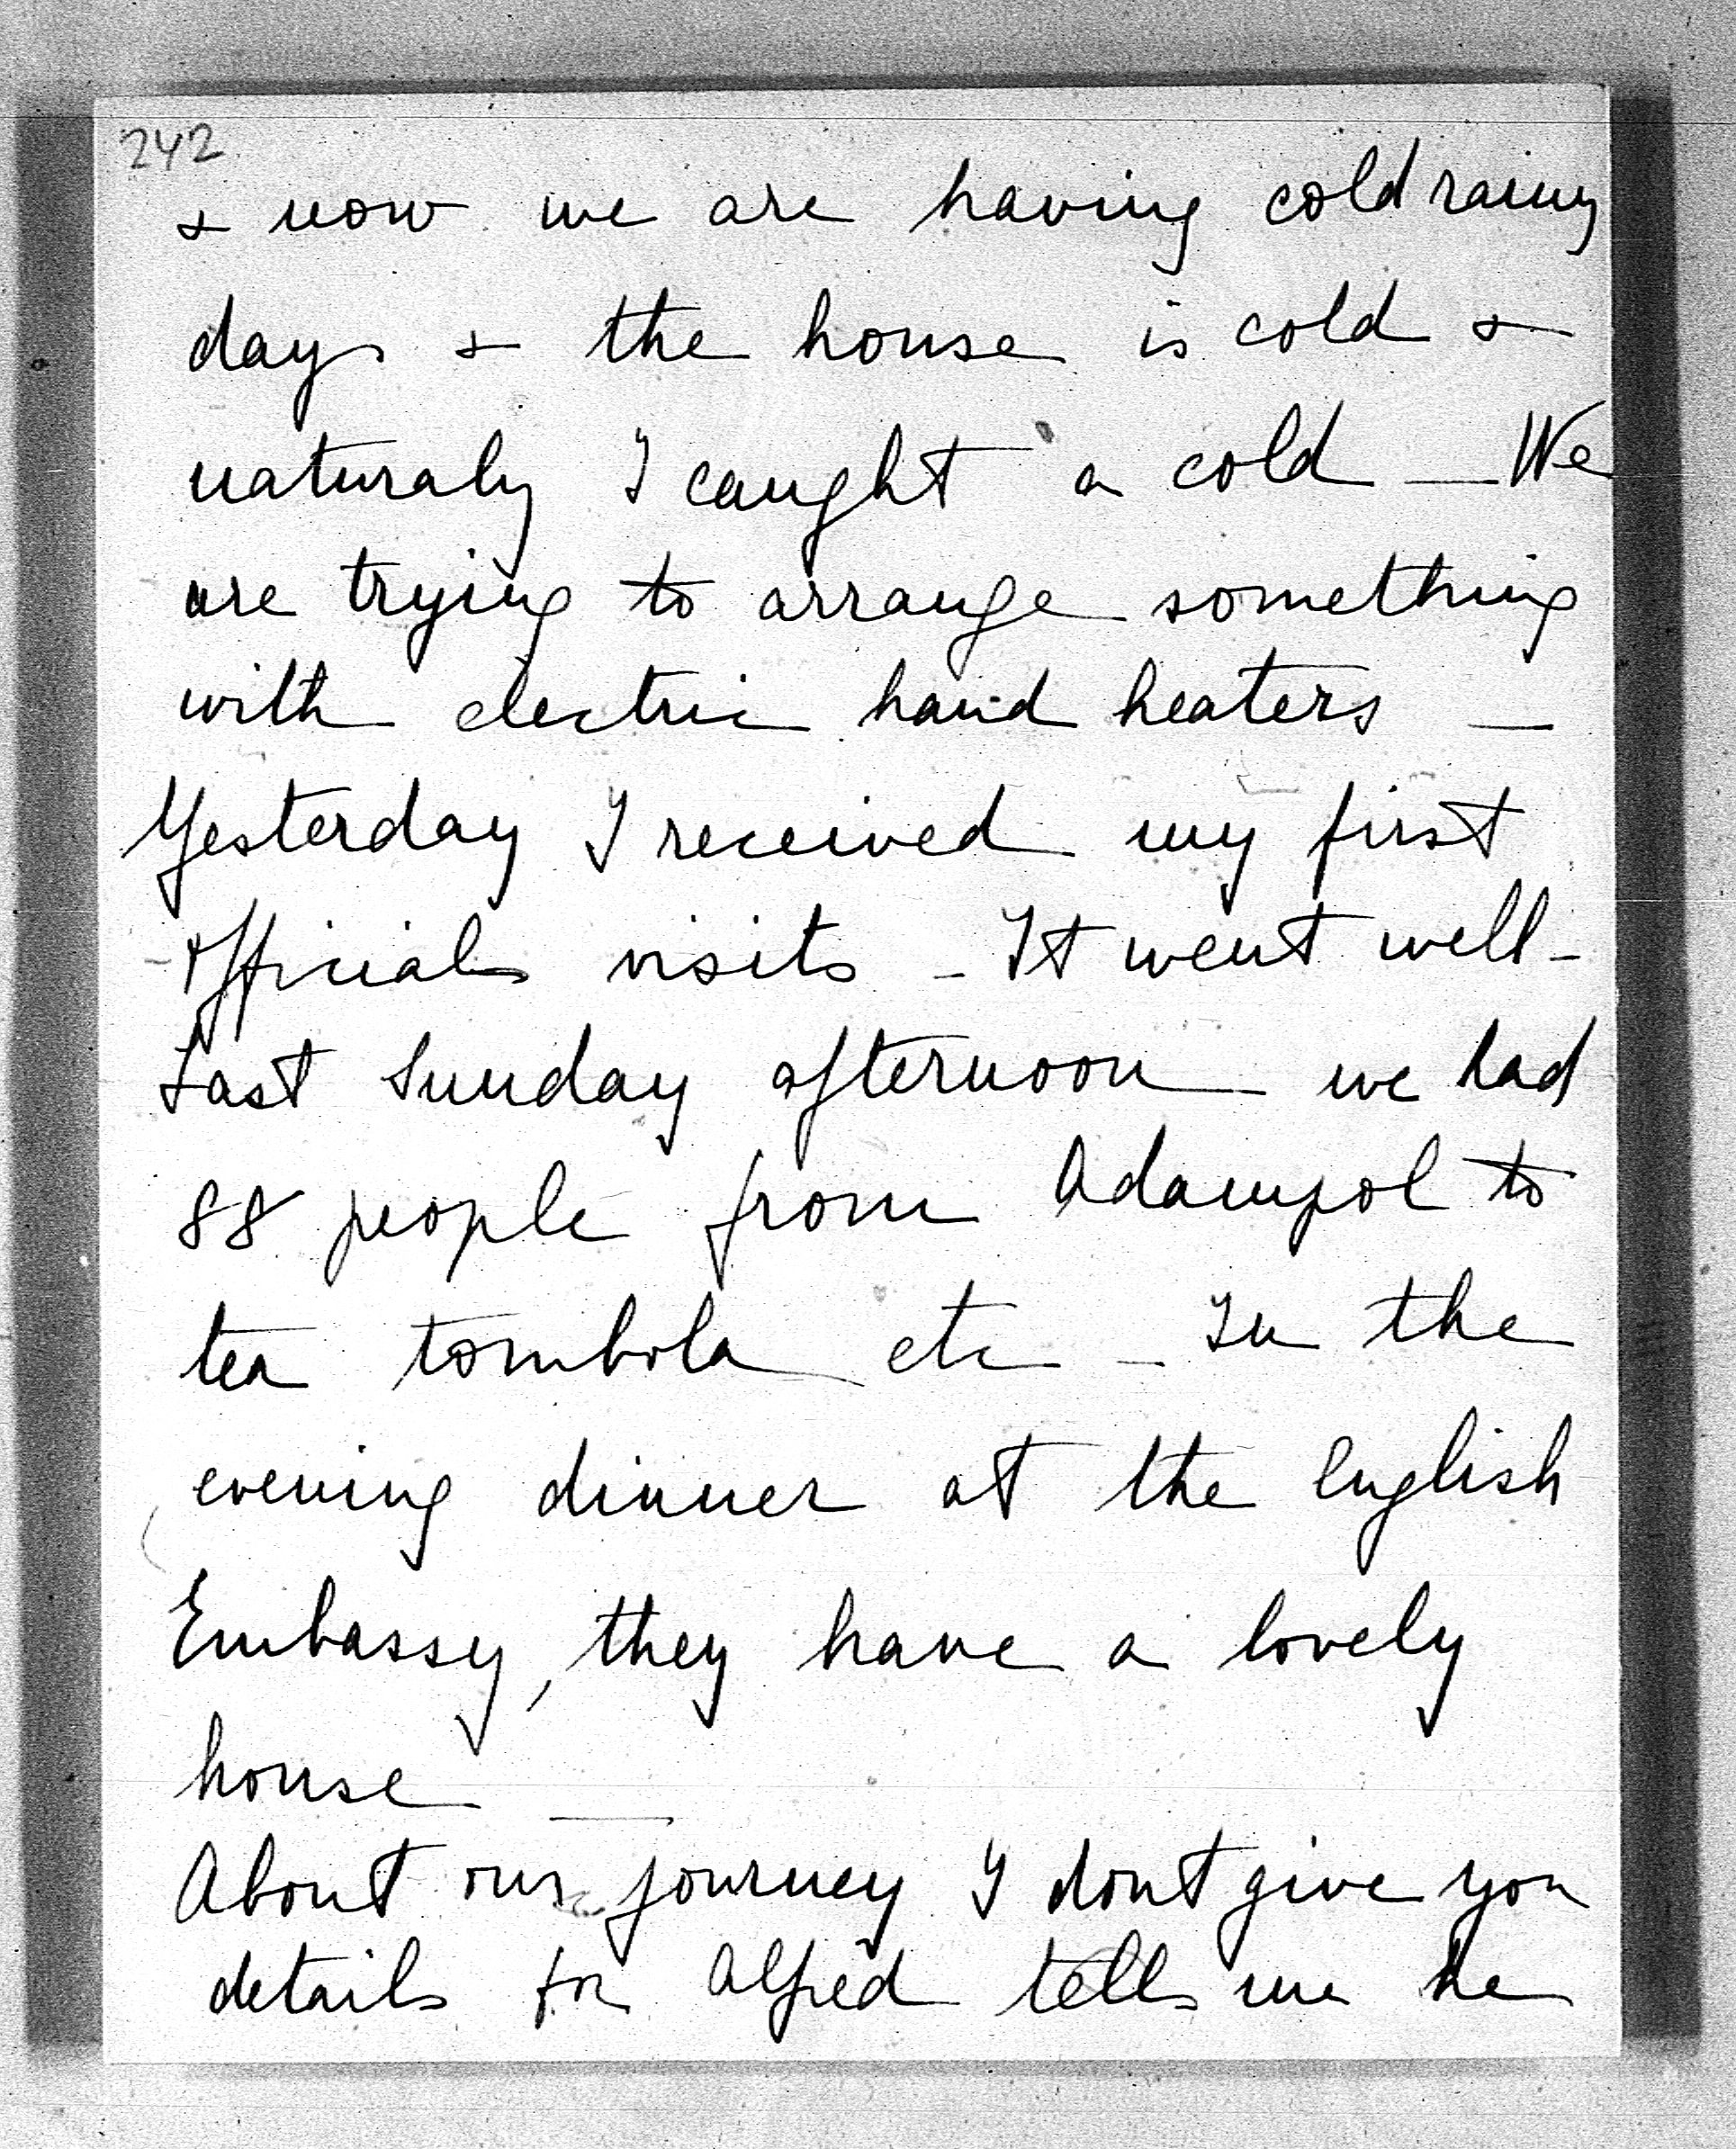 242
& now we are having cold rainy
days & the house is cold &
naturaly I caught a cold — We
are trying to arrange something
with electric hand heaters —
Yesterday I received my first
officials visits - It went well -
Last Sunday afternoon we had
88 people from Adampol to
tea tombola etc - In the
evening dinner at the English
Embassy, they have a lovely
house —
About our journey I dont give you
details for Alfred tells me he